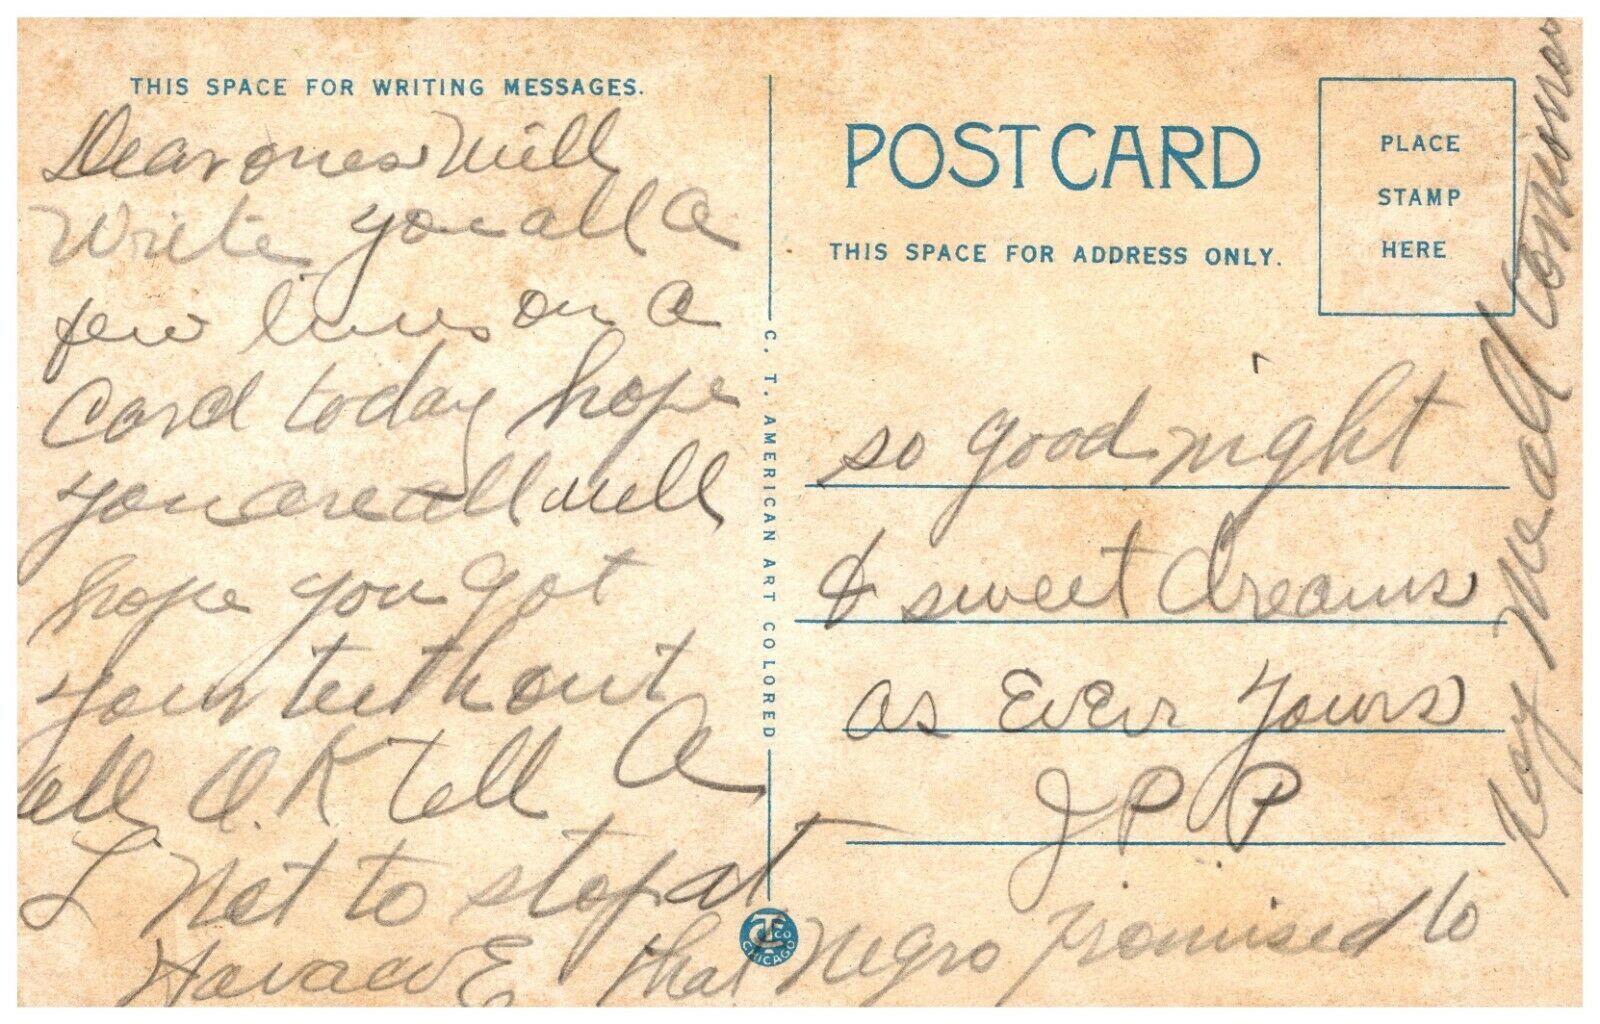 THIS SPACE FOR WRITING MESSAGES.
Dear ones Will
Write you all a
few lines on a
Card today hope
you are all well
hope you got
your tuthout
all O.K tell A
L Not to stop at
that Negro Promised to
Pay me all tomorrow
POST CARD
THIS SPACE FOR ADDRESS ONLY.
PLACE
STAMP
HERE
so good night
& sweet dreams
as EvEr Yours
J P P
C. T. AMERICAN ART COLORED
CT Co
CHICAGO